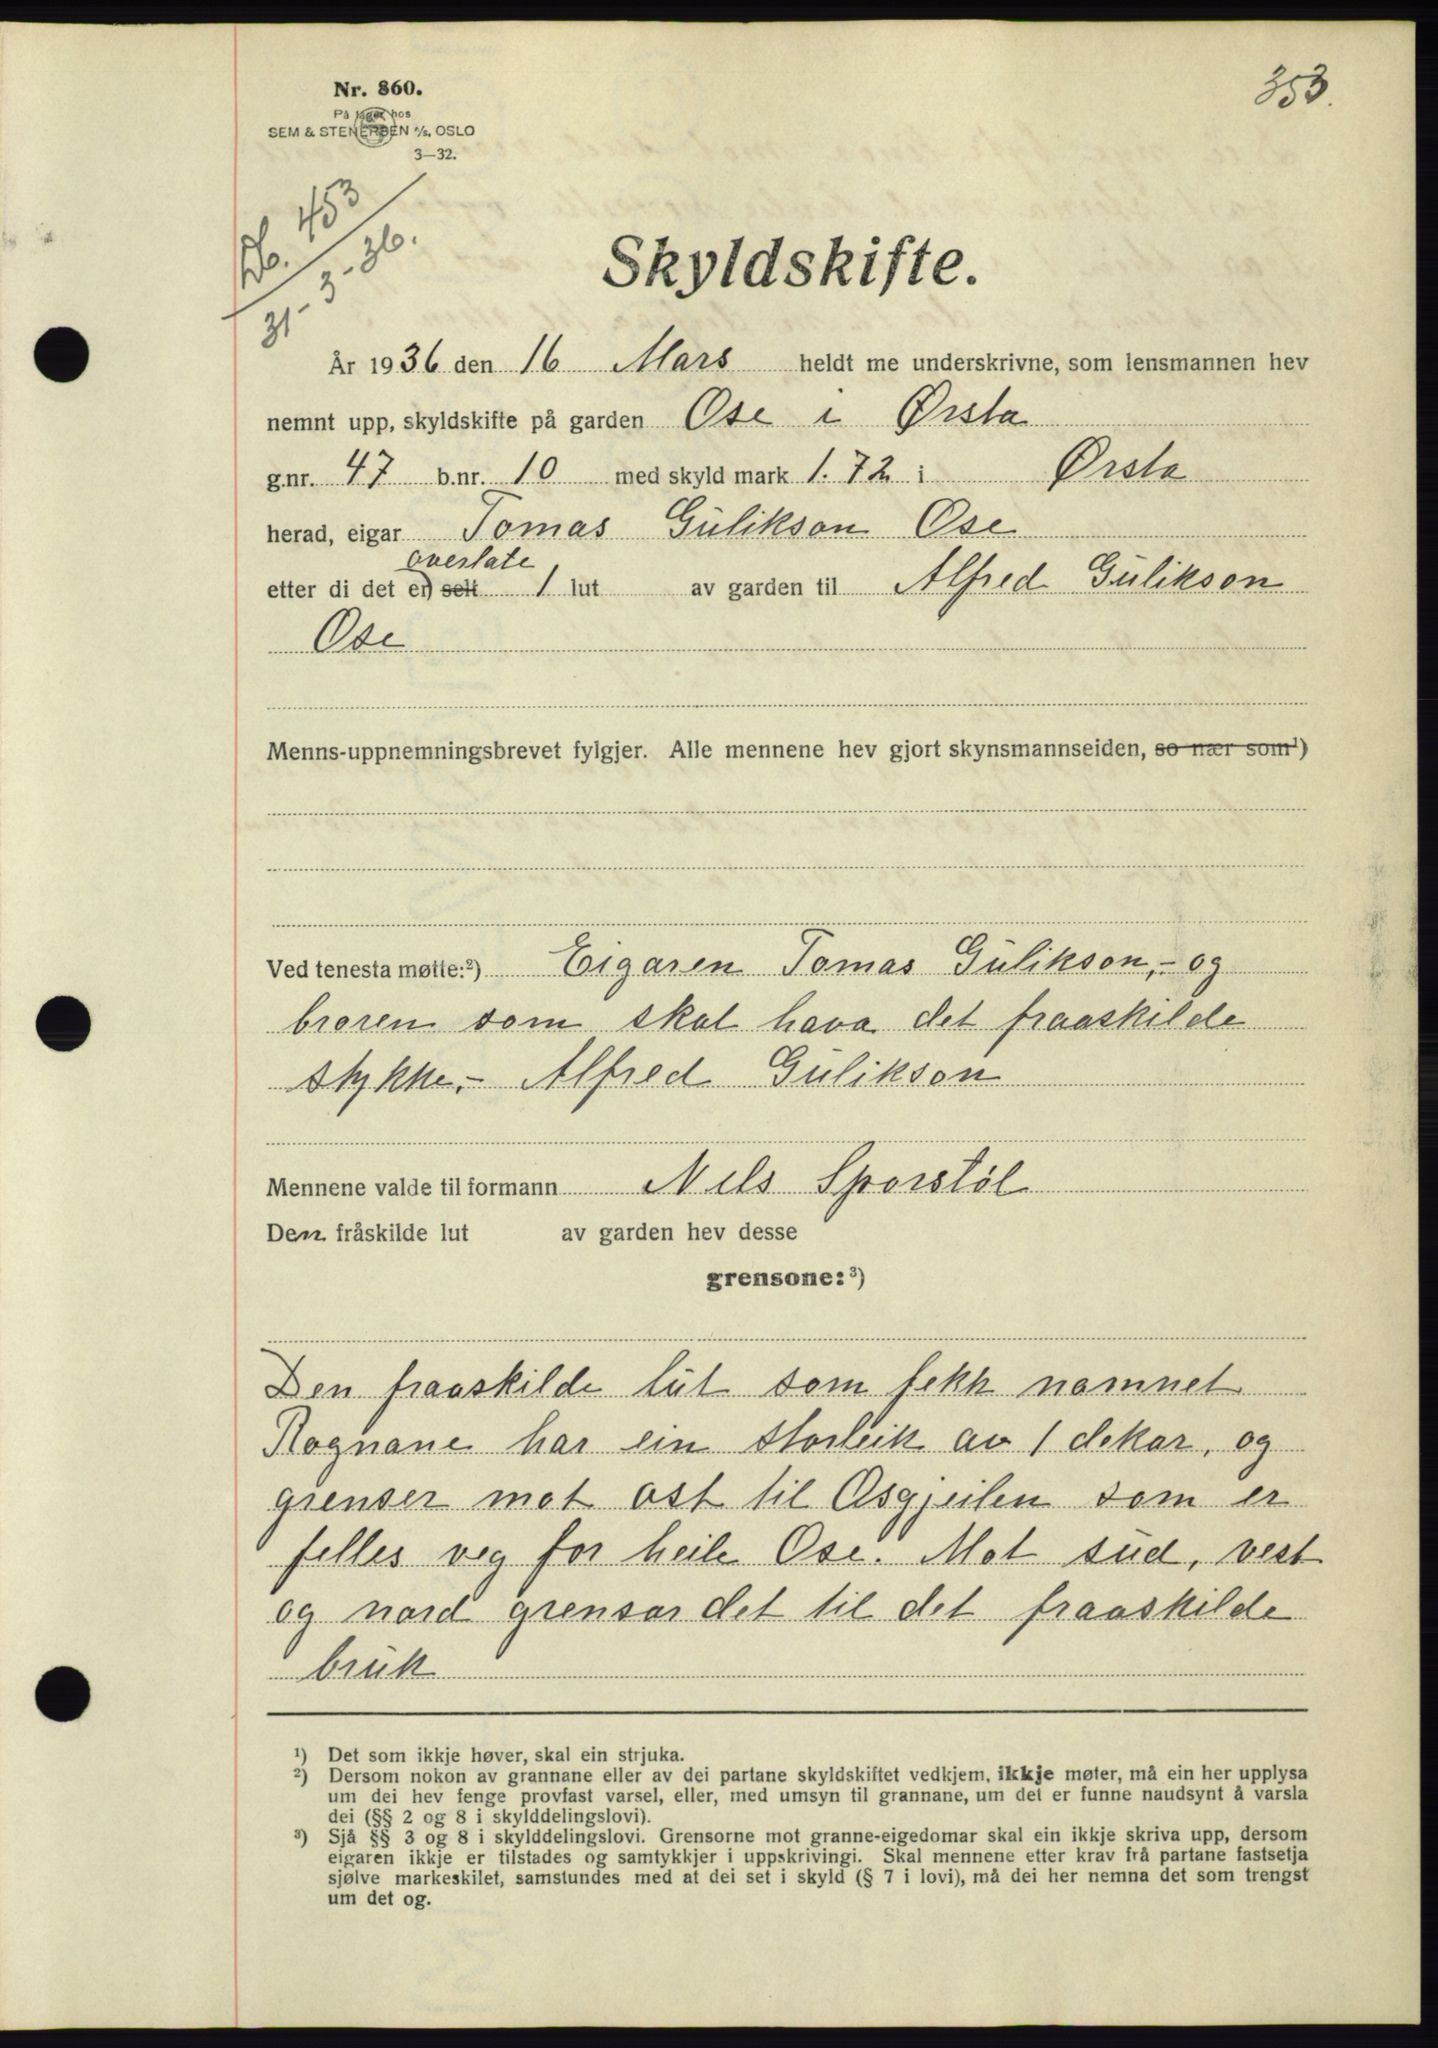 353.
Nr. 860.
På lager hos
SEM & STENERSEN A/S. OSLO
3—32.
Db. 453
31-3-36.
Skyldskifte.
År 1936 den 16 Mars heldt me underskrivne, som lensmannen hev
nemnt upp, skyldskifte på garden Ose i Ørsta
g.nr. 47 b.nr. 10 med skyld mark 1.72 i Ørsta
herad, eigar Tomas Gulikson Ose
overlate
etter di det er selt 1 lut av garden til Alfred Gulikson
Ose
Menns-uppnemningsbrevet fylgjer. Alle mennene hev gjort skynsmannseiden, so nær som¹)
Ved tenesta møtte:²) Eigaren Tomas Gulikson,- og
broren som skal hava det fraaskilde
stykke.- Alfred Gulikson
Mennene valde til formann Nils Sporstöl
Den fråskilde lut av garden hev desse
grensone:³)
Den fraaskilde lut som fekk namnet
Rognane har ein storleik av 1 dekar, og
grenser mot ost til Osgjeilen som er
felles veg for heile Ose. Mot sud, vest
og nord grensar det til det fraaskilde
bruk
¹) Det som ikkje høver, skal ein strjuka.
²) Dersom nokon av grannane eller av dei partane skyldskiftet vedkjem, ikkje møter, må ein her upplysa
um dei hev fenge provfast varsel, eller, med umsyn til grannane, um det er funne naudsynt å varsla
dei (§§ 2 og 8 i skylddelingslovi).
³) Sjå §§ 3 og 8 i skylddelingslovi. Grensorne mot granne-eigedomar skal ein ikkje skriva upp, dersom
eigaren ikkje er tilstades og samtykkjer i uppskrivingi. Skal mennene etter krav frå partane fastsetja
sjølve markeskilet, samstundes med at dei set i skyld (§ 7 i lovi), må dei her nemna det som trengst
um det og.